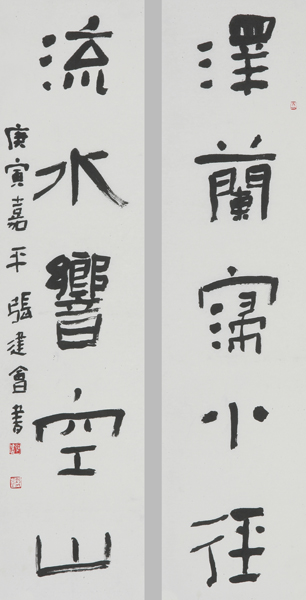 澤蘭寖小徑
流水響空山
庚寅嘉平 張建會書